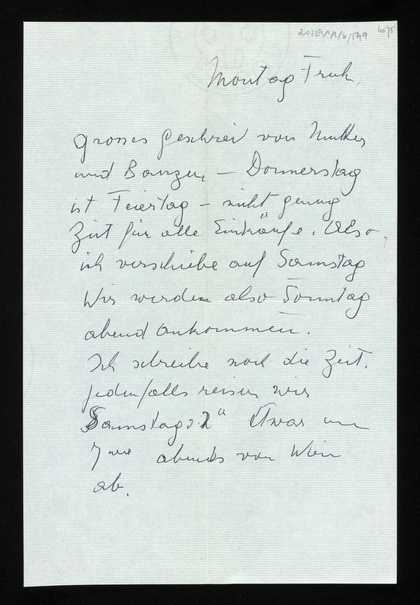 Montag Früh.
grosses Geschrei von Mutter
und – Donnerstag
ist Feiertag – nicht genug
Zeit für alle Einkäufe. Also
ich verschiebe auf Samstag
Wir werden also Sonntag
abend ankommen.
Ich schreibe noch die Zeit.
Jedenfalls reisen wir
Samstag Etwas um
7 abends von Wien
ab.